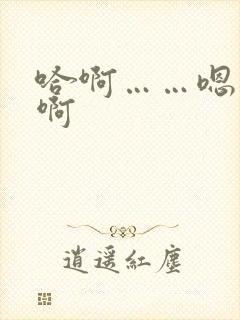 哈啊……嗯
啊
逍遥红尘